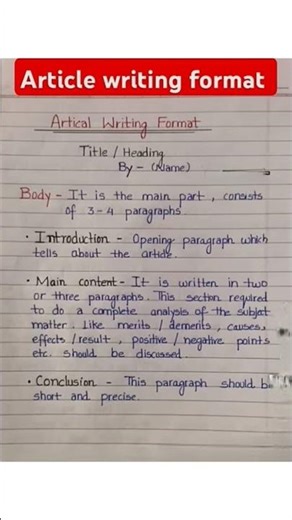 Article writing format
Artical Writing Format
Title / Heading
By - (Name)
Body - It is the main part, consists
of 3-4 paragraphs.
• Introduction - Opening paragraph which
tells about the article.
• Main content - It is written in two
or three paragraphs. This section required
to do a complete analysis of the subject
matter. Like merits / demerits, causes,
effects / result, positive / negative points
etc. should be discussed.
• Conclusion - This paragraph should be
short and precise.